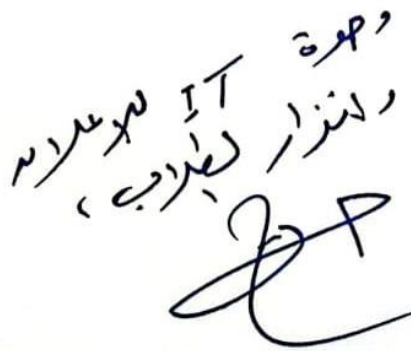 وحدة IT للاعلان
وانذار الطلاب،